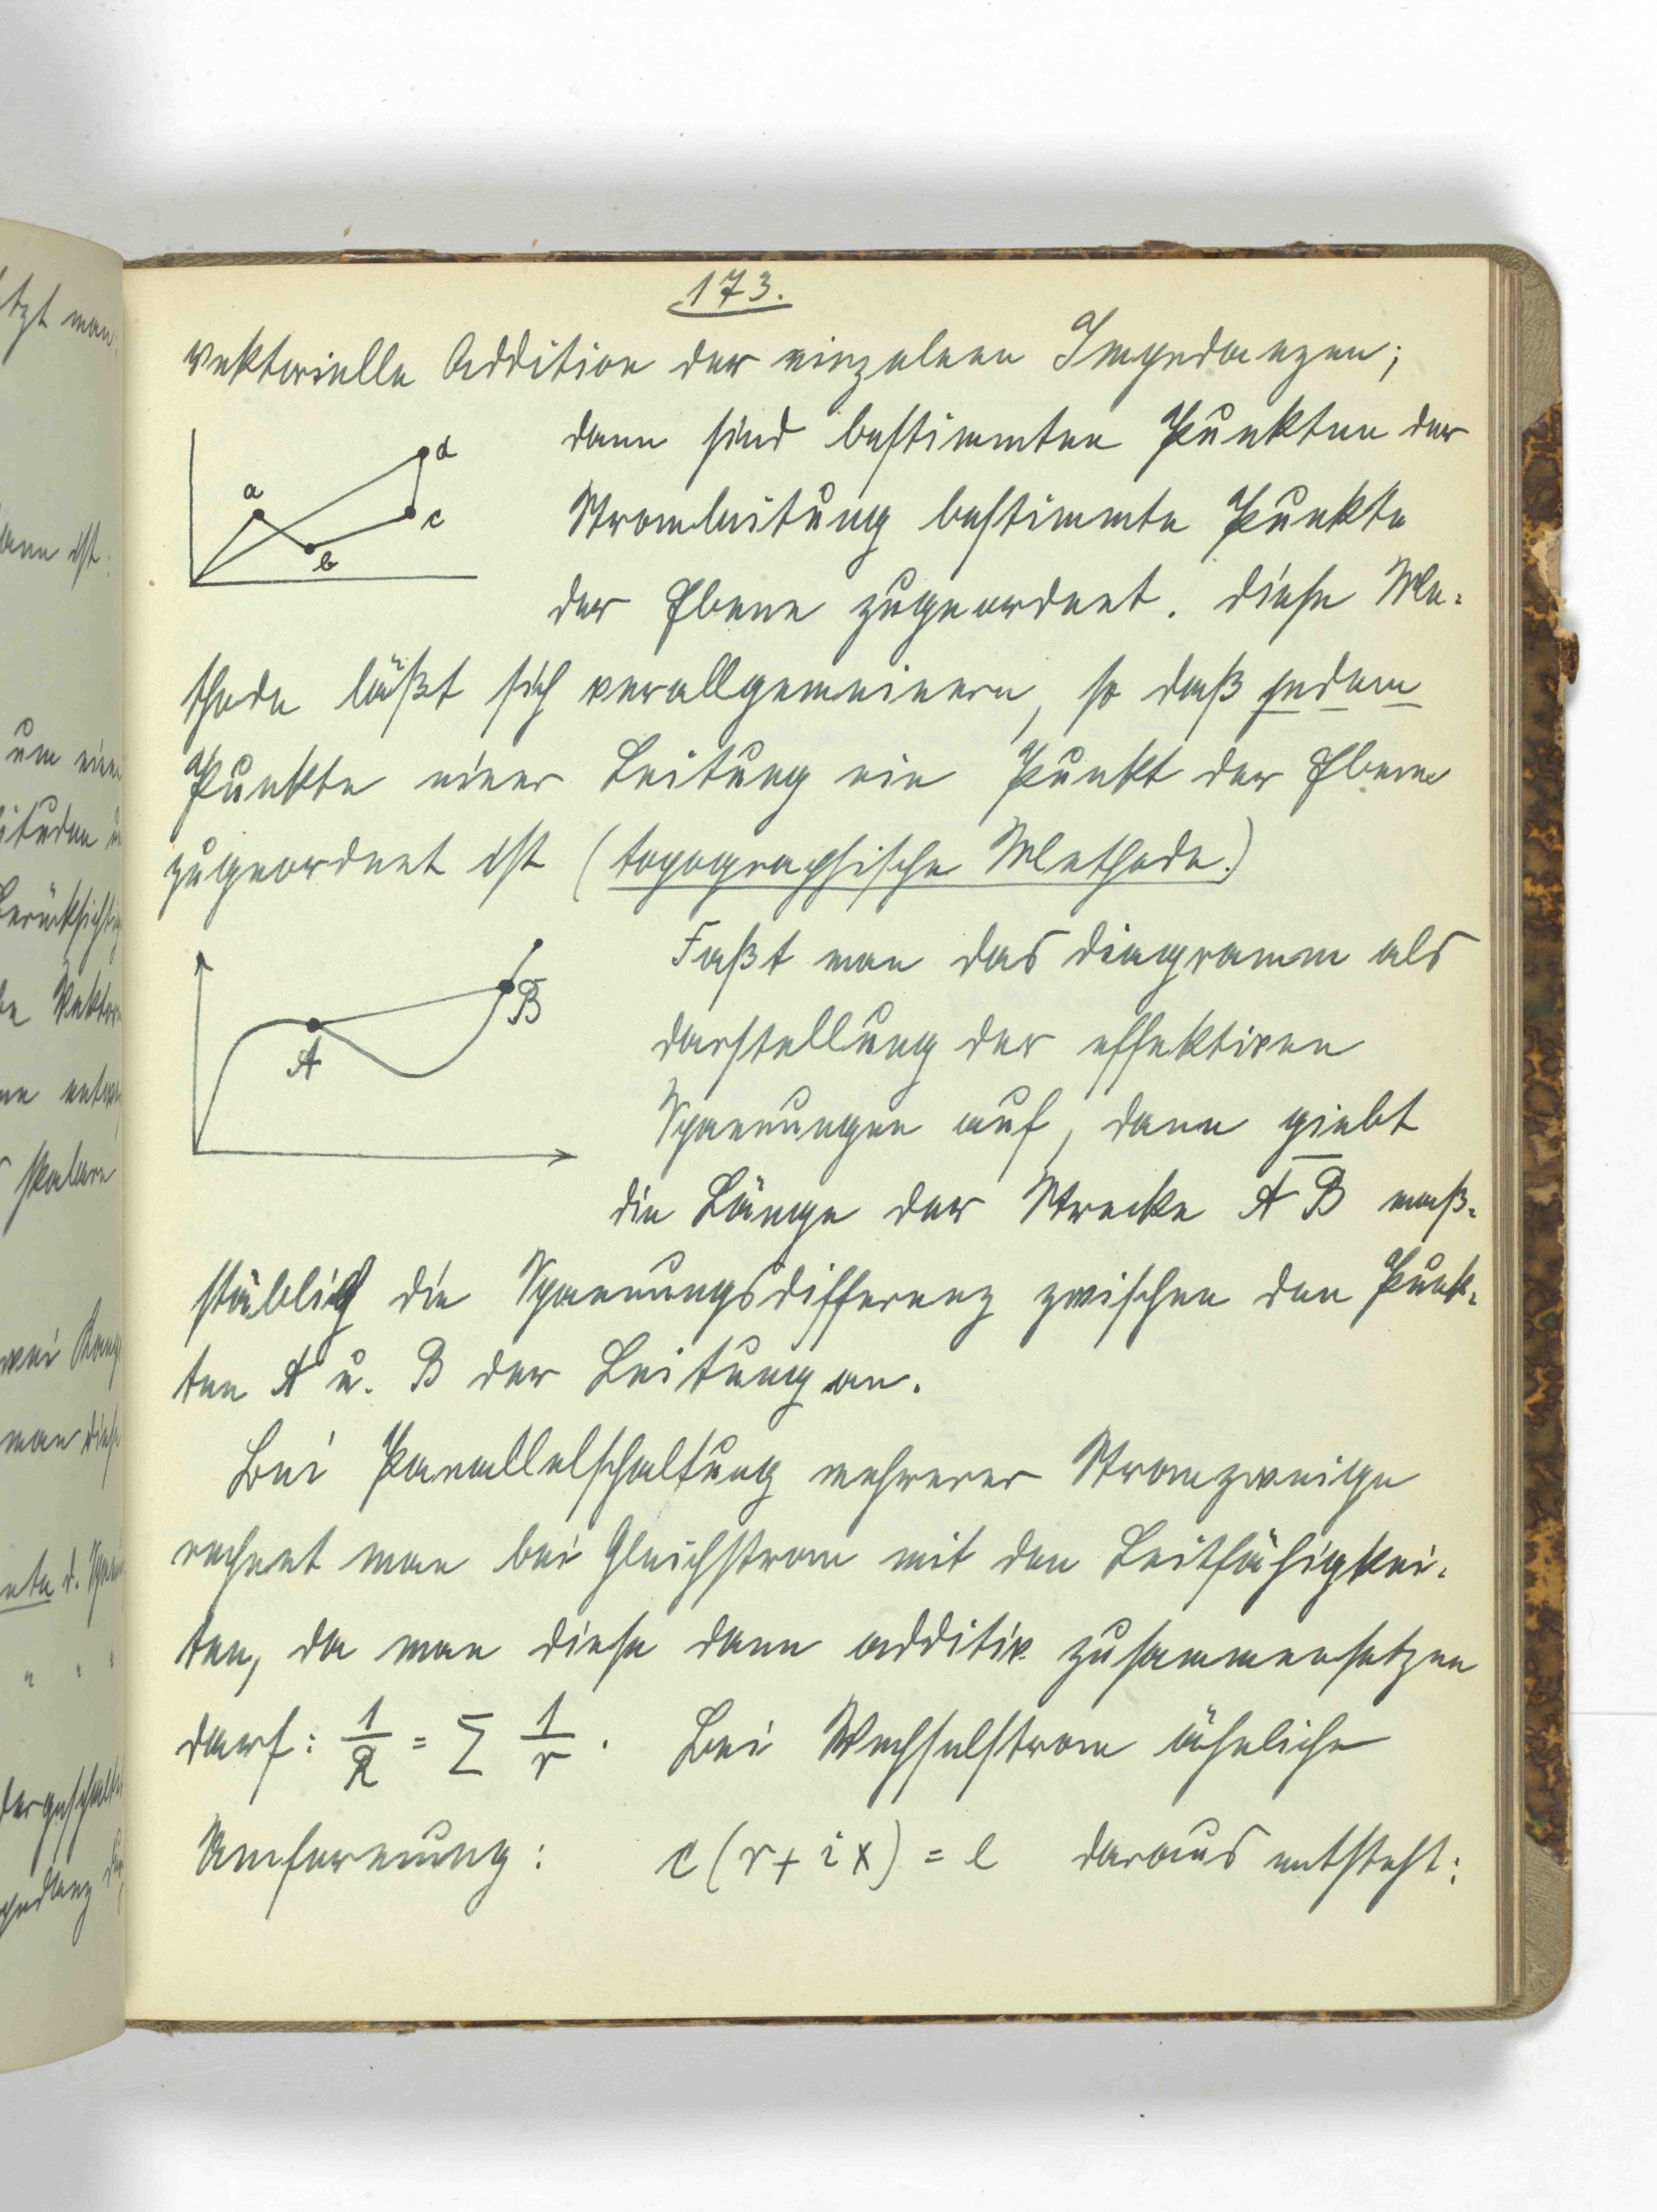 173.
vektorielle Addition der einzelnen Impedanzen;
dann sind bestimmten Punkten der
Stromleitung bestimmte Punkte
der Ebene zugeordnet. Diese Me-
thode läßt sich verallgemeinern, so daß jedem
Punkte einer Leitung ein Punkt der Ebene
zugeordnet ist (topographische Methode.)
a
b
c
d
Faßt man das Diagramm als
Darstellung der effektiven
Spannungen auf, dann giebt
die Länge der Strecke A̅B̅ maß-
A
B
stäblich die Spannungsdifferenz zwischen den Punk-
ten A u. B der Leitung an.
Bei Parallelschaltung mehrerer Stromzweige
rechnet man bei Gleichstrom mit den Leitfähigkei-
ten, da man diese dann additiv zusammensetzen
darf: 1/R = Σ 1/r . Bei Wechselstrom ähnliche
Umformung: c(r + ix) = e daraus entsteht: